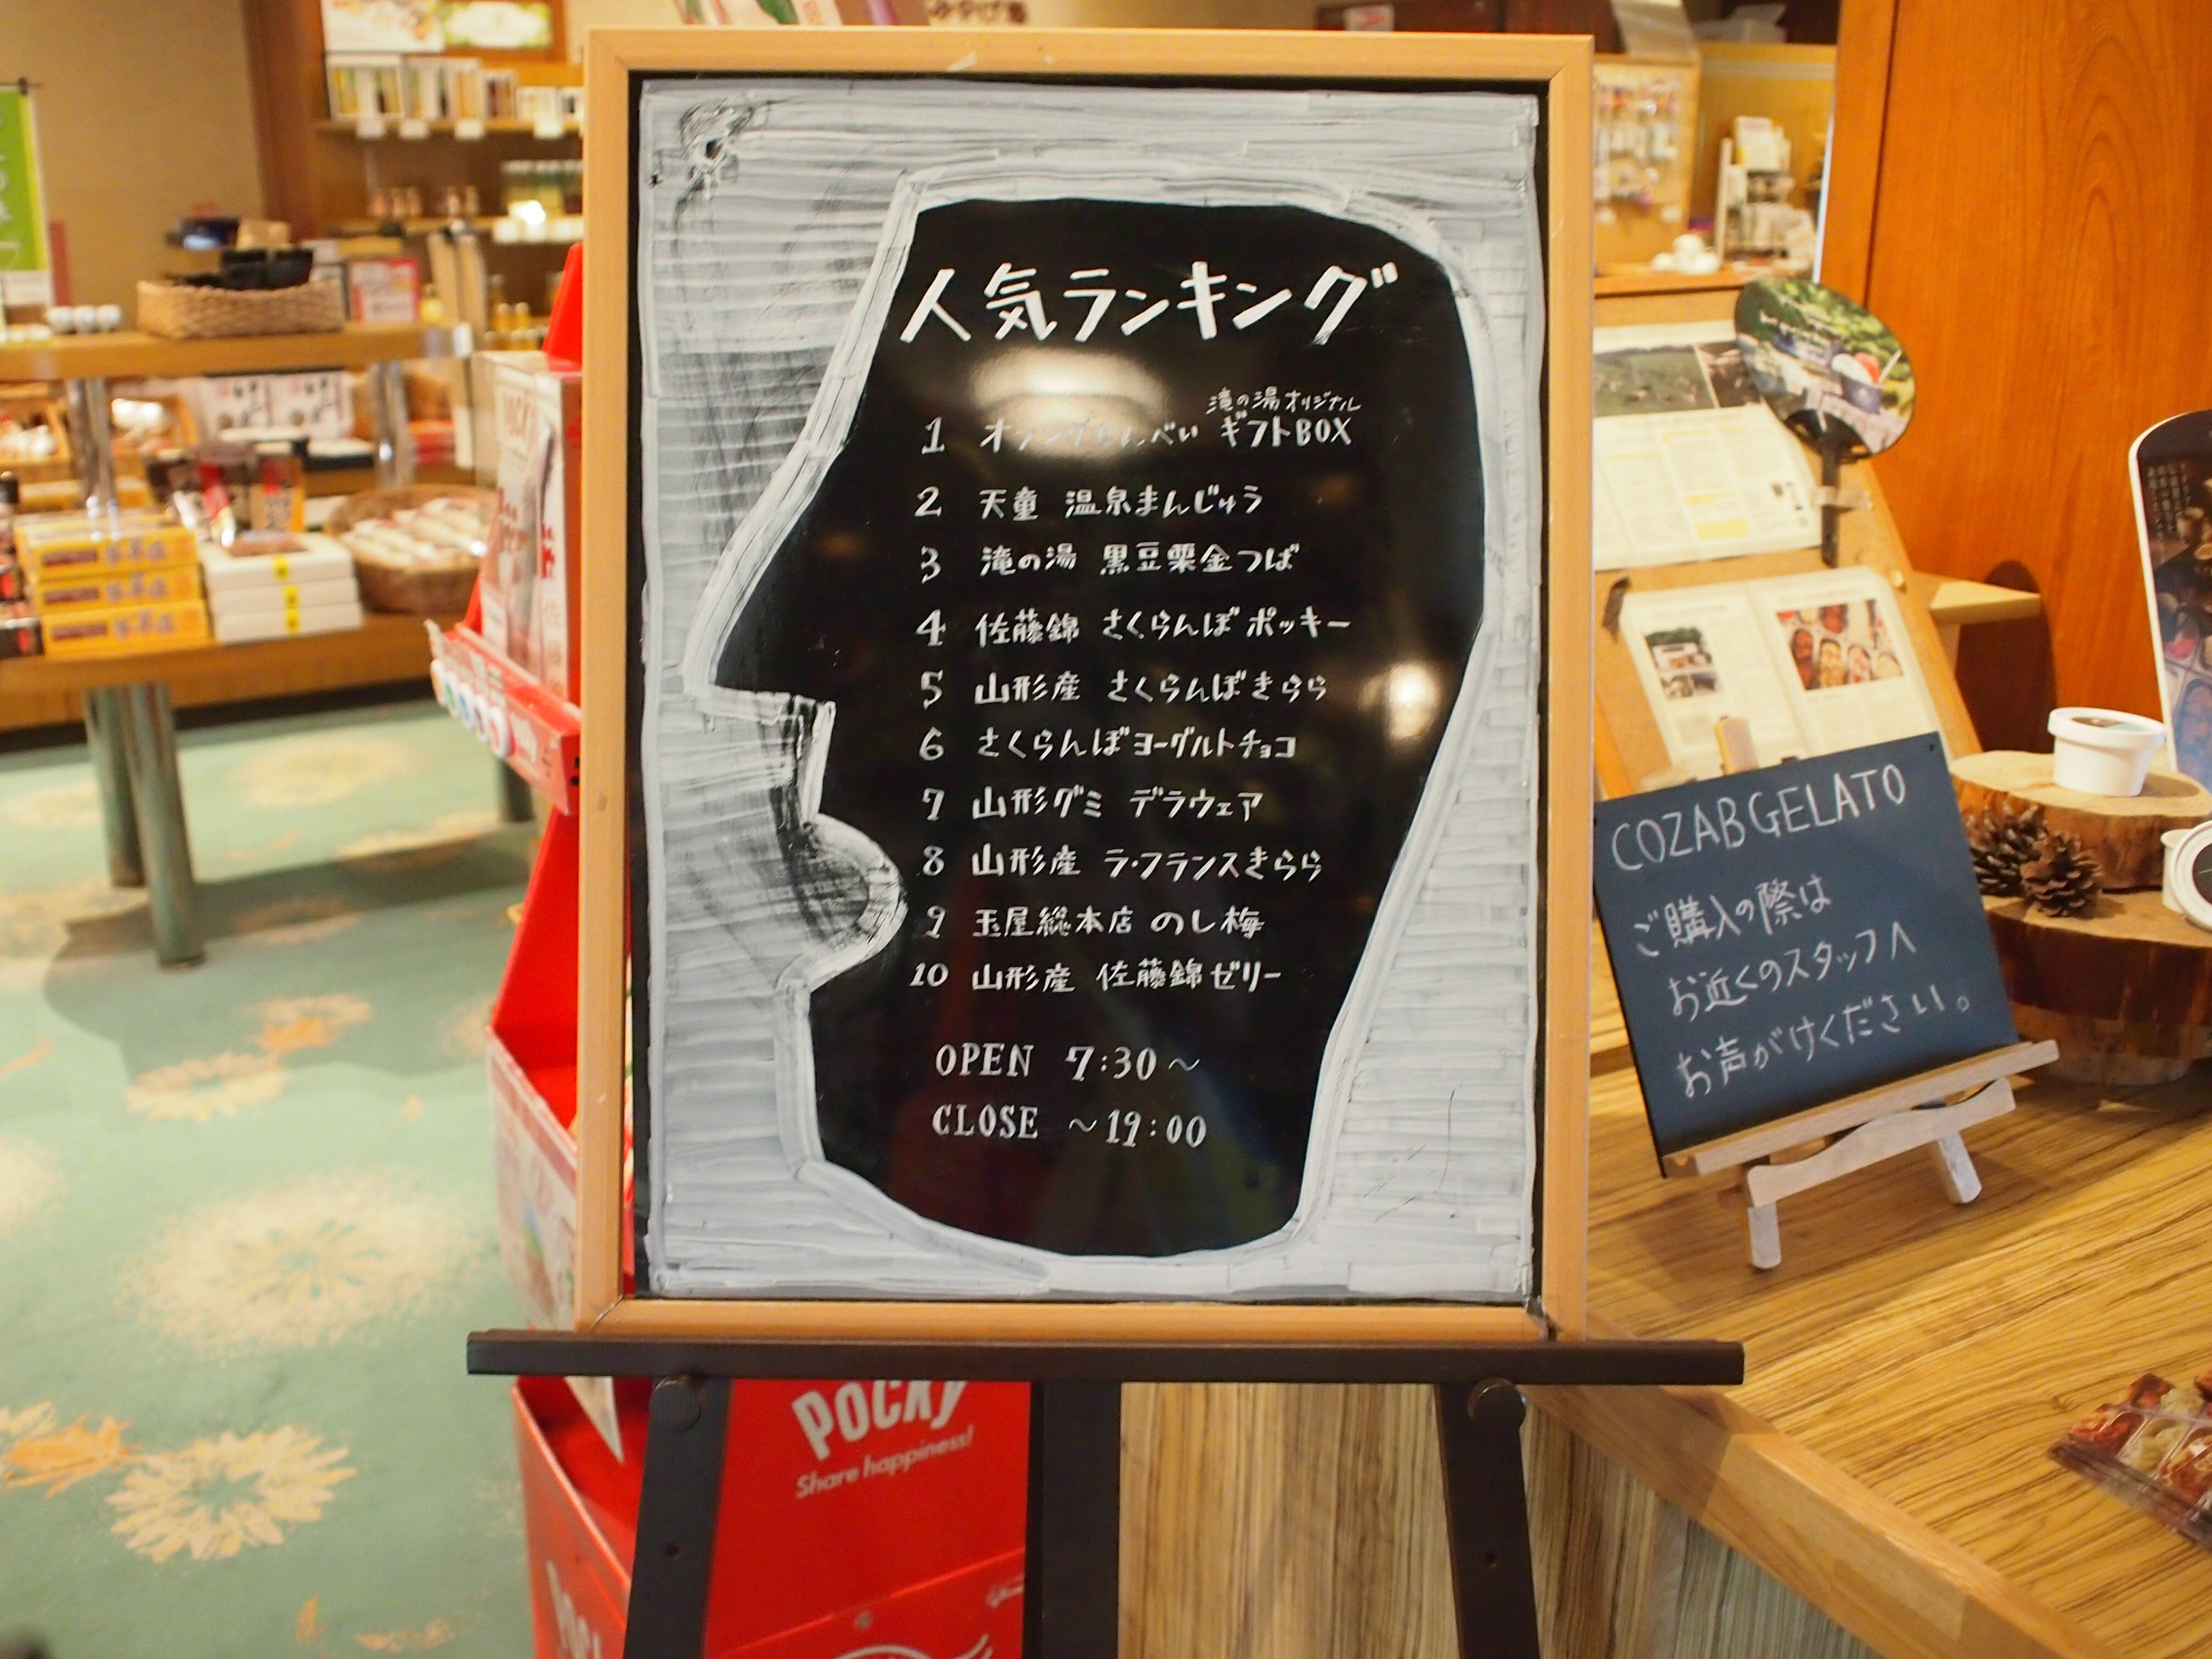 人気ランキング
滝の湯オリジナル
1 オランダせんべい ギフトBOX
2 天童 温泉まんじゅう
3 滝の湯 黒豆栗金つば
4 佐藤錦 さくらんぼポッキー
5 山形産 さくらんぼきらら
6 さくらんぼヨーグルトチョコ
7 山形グミ デラウェア
8 山形産 ラ・フランスきらら
9 玉屋総本店 のし梅
10 山形産 佐藤錦ゼリー
OPEN 7:30～
CLOSE ～19:00
COZAB GELATO
ご購入の際は
お近くのスタッフへ
お声がけください。
POCKY
Share happiness!